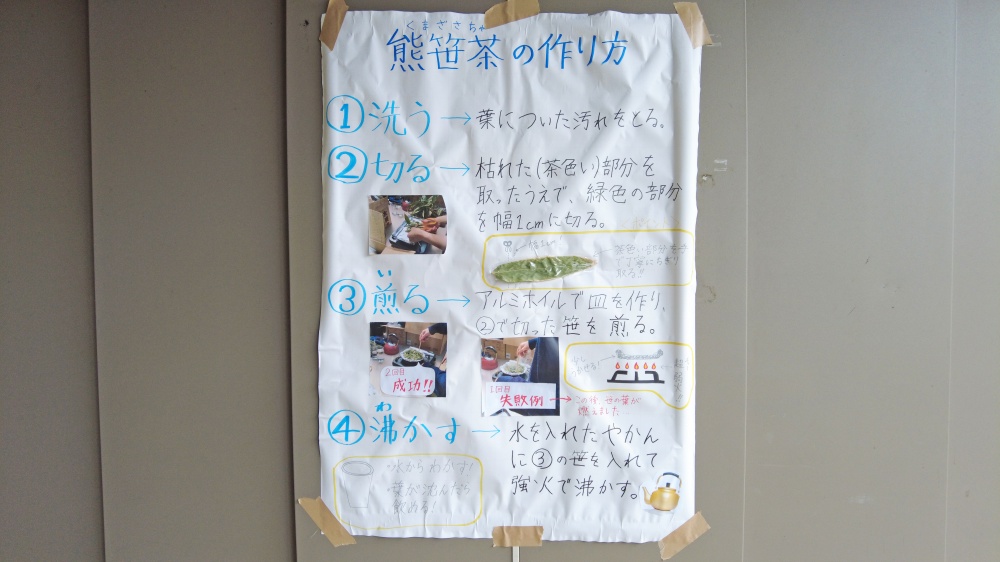 くまざさちゃ
熊笹茶の作り方
①洗う→葉についた汚れをとる。
②切る→枯れた(茶色い)部分を
取ったうえで、緑色の部分
を幅1cmに切る。
茶色い部分
取る!!
い
③煎る→アルミホイルで皿を作り、
②で切った笹を煎る。
2回目
成功!!
1回目
失敗例→この後、笹の葉が
燃えました
わ
④沸かす→水を入れたやかん
に③の笹を入れて
強火で沸かす。
・水からわかす!
・葉が沈んだら
飲める!